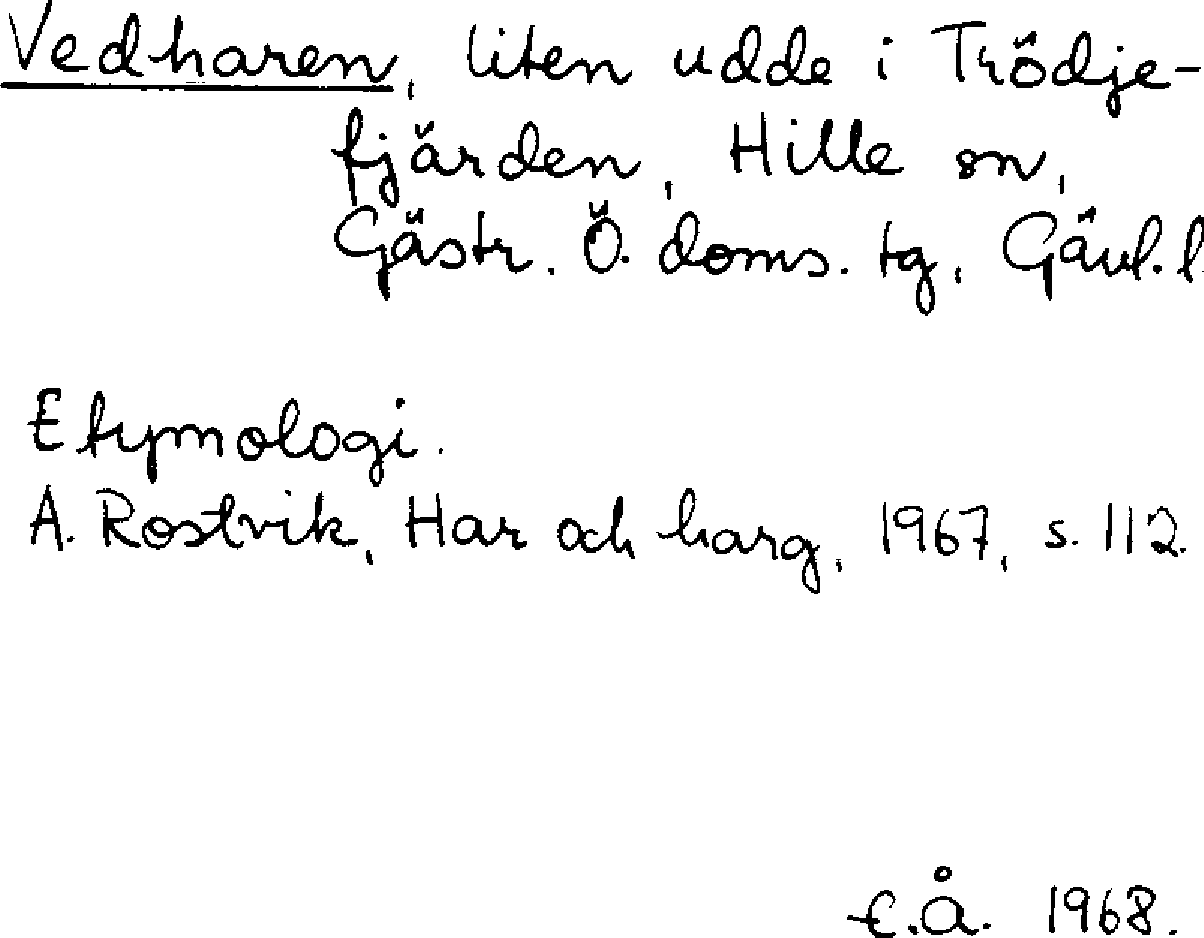 Vedharen, liten udde i Trödje-
fjärden, Hille sn,
Gästr. Ö. doms. tg, Gävl. l
Etymologi.
A. Rostvik, Har och harg, 1967, s. 112.
E.Å. 1968.